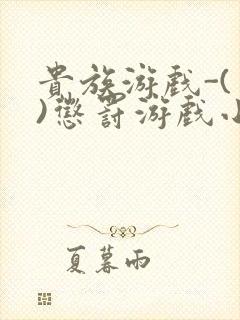 貴族游戲-(
)懲罰游戲小
夏暮雨